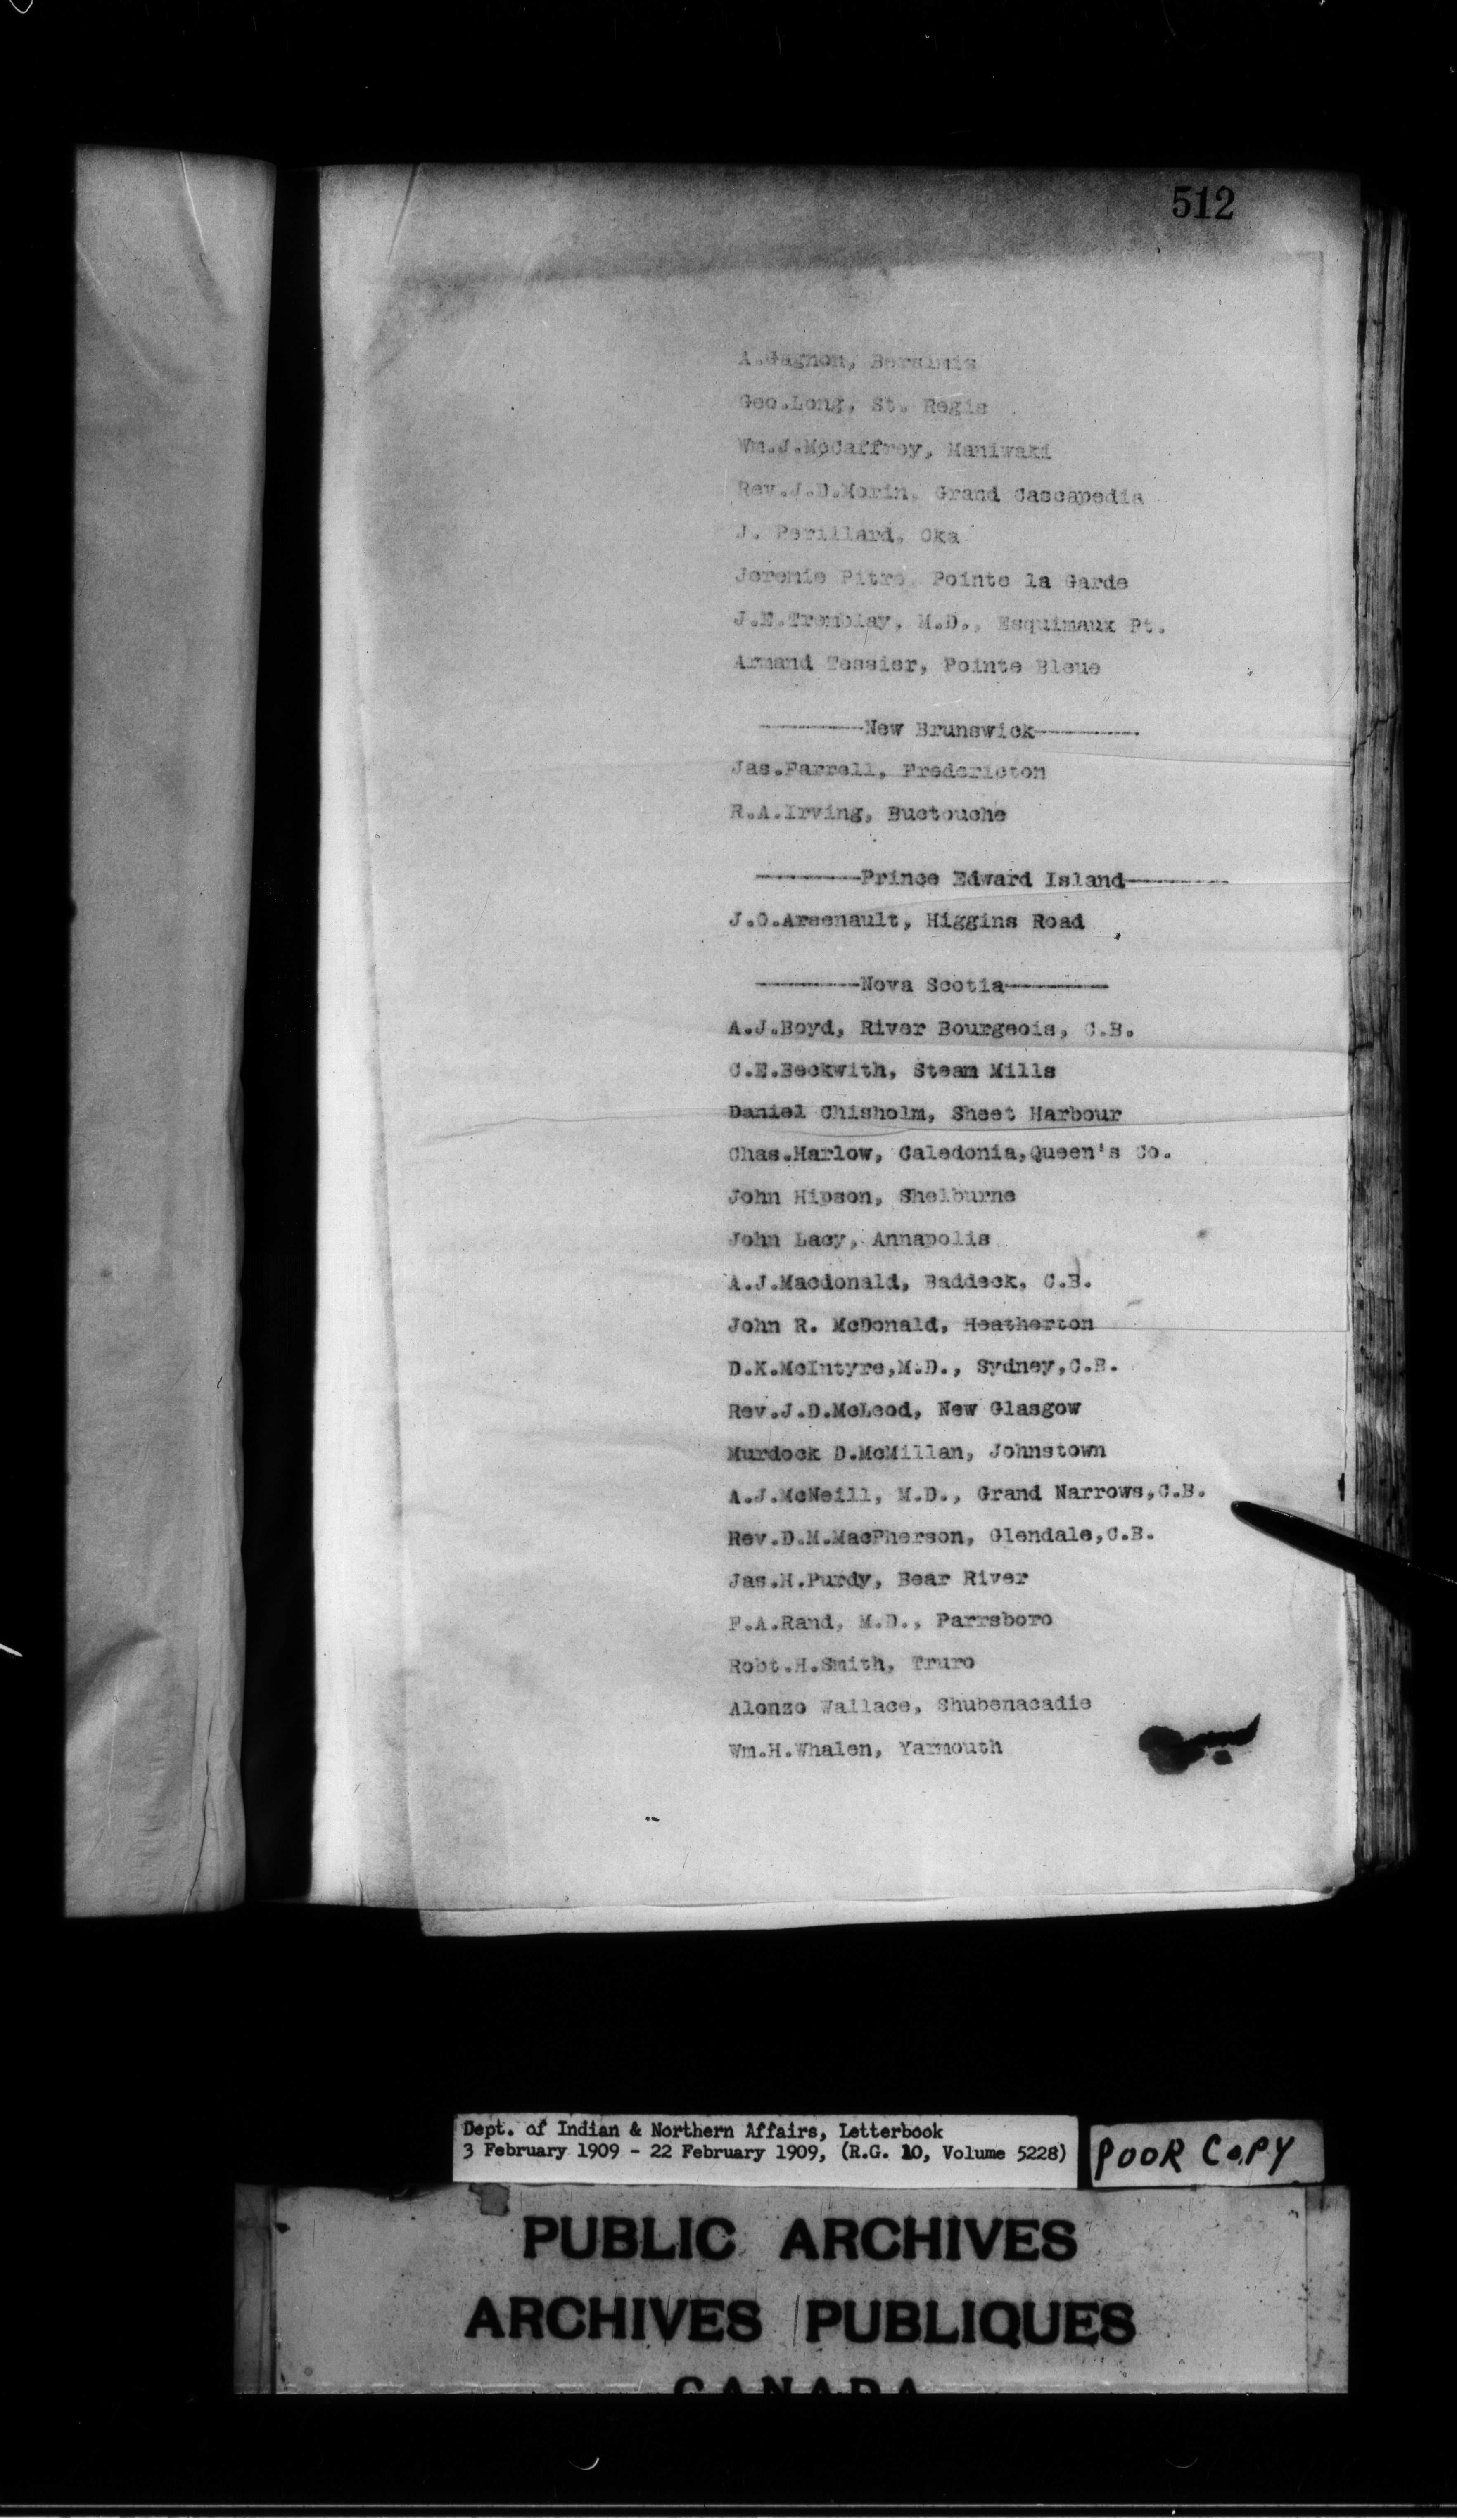 512
A.Gagnon, Bersimis
Geo.Long, St. Regis
Wm.J.McCaffrey, Maniwaki
Rev.J.D.Morin, Grand Cascapedia
J. Perillard, Oka
Jeremie Pitre, Pointe la Garde
J.E.Tremblay, M.D., Esquimaux Pt.
Armand Tessier, Pointe Bleue
--------New Brunswick--------
Jas.Farrell, Fredericton
R.A.Irving, Buctouche
--------Prince Edward Island--------
J.O.Arsenault, Higgins Road
--------Nova Scotia--------
A.J.Boyd, River Bourgeois, C.B.
C.E.Beckwith, Steam Mills
Daniel Chisholm, Sheet Harbour
Chas.Harlow, Caledonia,Queen's Co.
John Hipson, Shelburne
John Lacy, Annapolis
A.J.Macdonald, Baddeck, C.B.
John R. McDonald, Heatherton
D.K.McIntyre,M.D., Sydney,C.B.
Rev.J.D.McLeod, New Glasgow
Murdock D.McMillan, Johnstown
A.J.McNeill, M.D., Grand Narrows,C.B.
Rev.D.M.MacPherson, Glendale,C.B.
Jas.H.Purdy, Bear River
F.A.Rand, M.D., Parrsboro
Robt.H.Smith, Truro
Alonzo Wallace, Shubenacadie
Wm.H.Whalen, Yarmouth
Dept. of Indian & Northern Affairs, Letterbook
3 February 1909 - 22 February 1909, (R.G. 10, Volume 5228)
POOR COPY
PUBLIC ARCHIVES
ARCHIVES PUBLIQUES
CANADA